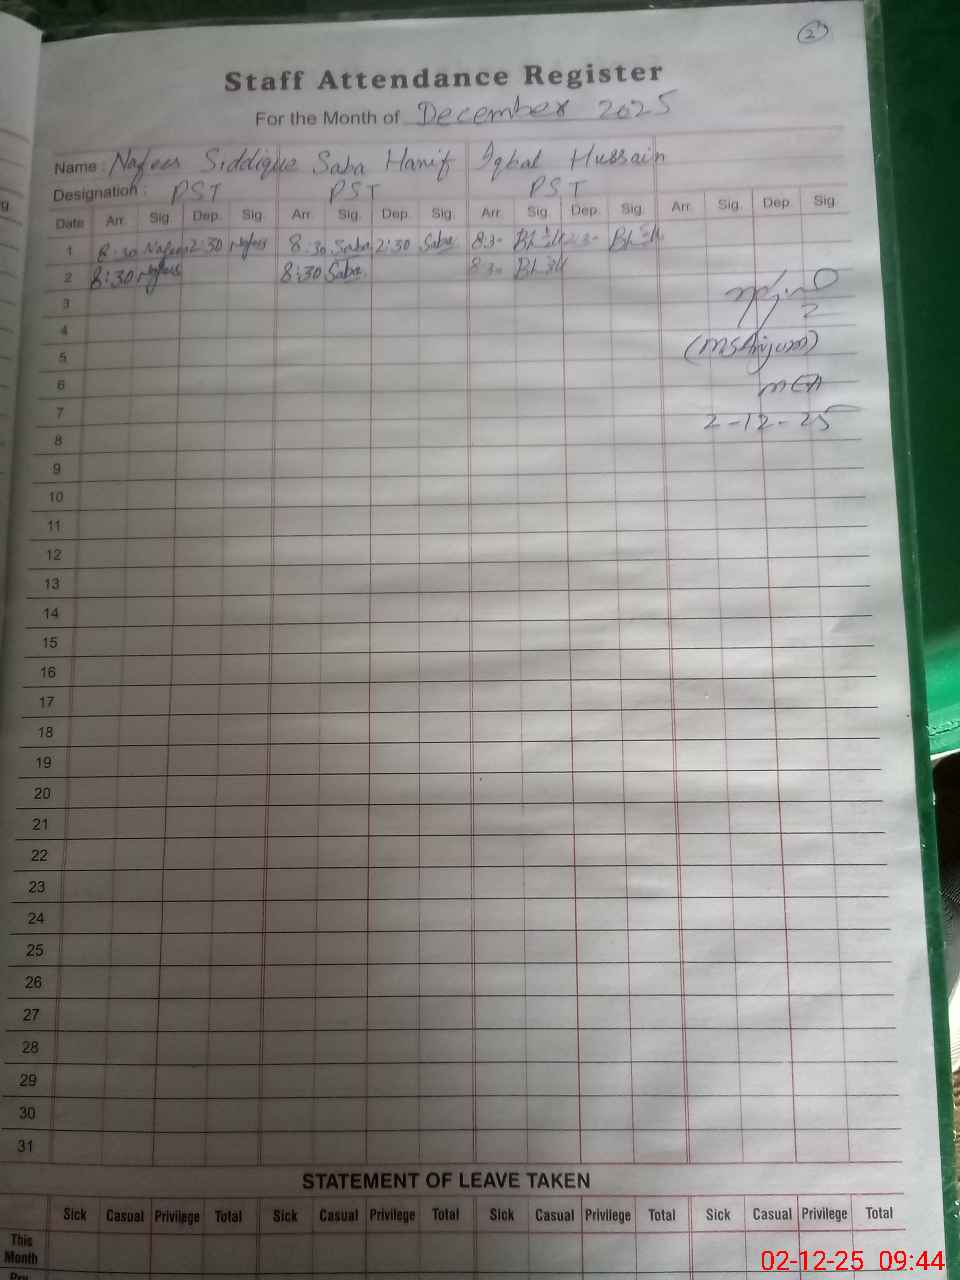 2
Staff Attendance Register
For the Month of December 2025
Name : Nafees Siddique Saba Hanif Iqbal Hussain
Designation : PST PST PST
Date Arr. Sig. Dep. Sig. Arr. Sig. Dep. Sig. Arr. Sig. Dep. Sig. Arr. Sig. Dep. Sig.
1 8:30 Nafees 2:30 Nafees 8:30 Saba 2:30 Saba 8:30 2:30
2 8:30 Nafees 8:30 Saba 8:30
3
4
(MSAnjum)
5
6 MEA
7
2-12-25
8
9
10
11
12
13
14
15
16
17
18
19
20
21
22
23
24
25
26
27
28
29
30
31
STATEMENT OF LEAVE TAKEN
Sick Casual Privilege Total Sick Casual Privilege Total Sick Casual Privilege Total Sick Casual Privilege Total
This
Month
02-12-25 09:44